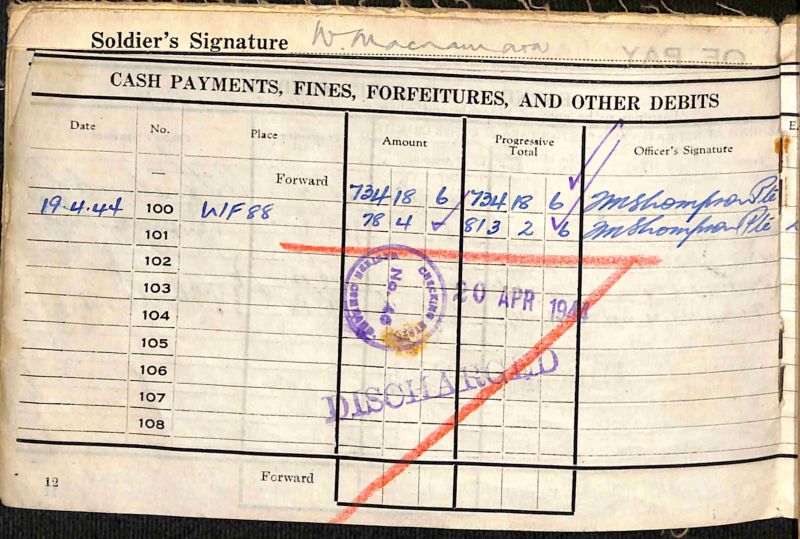 Soldier's Signature W. Macnamara
CASH PAYMENTS, FINES, FORFEITURES, AND OTHER DEBITS
Date No. Place Amount Progressive Total Officer's Signature
— Forward 734 18 6 734 18 6 Pte
19.4.44 100 W/F 88 78 4 - 813 2 6 Pte
101
102
103
104
105
106
107
108
CHECKING No. 46
20 APR 1944
DISCHARGED
12 Forward